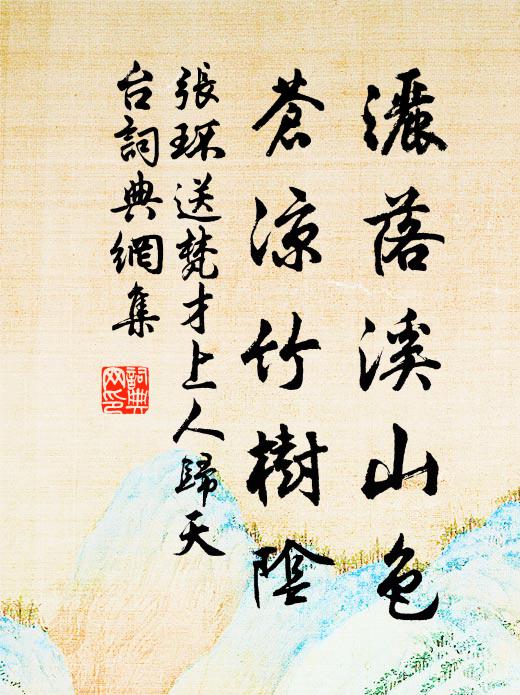 灑落溪山色
蒼涼竹樹陰
張環送梵才上人歸天
台詞典網集
詞典
网印